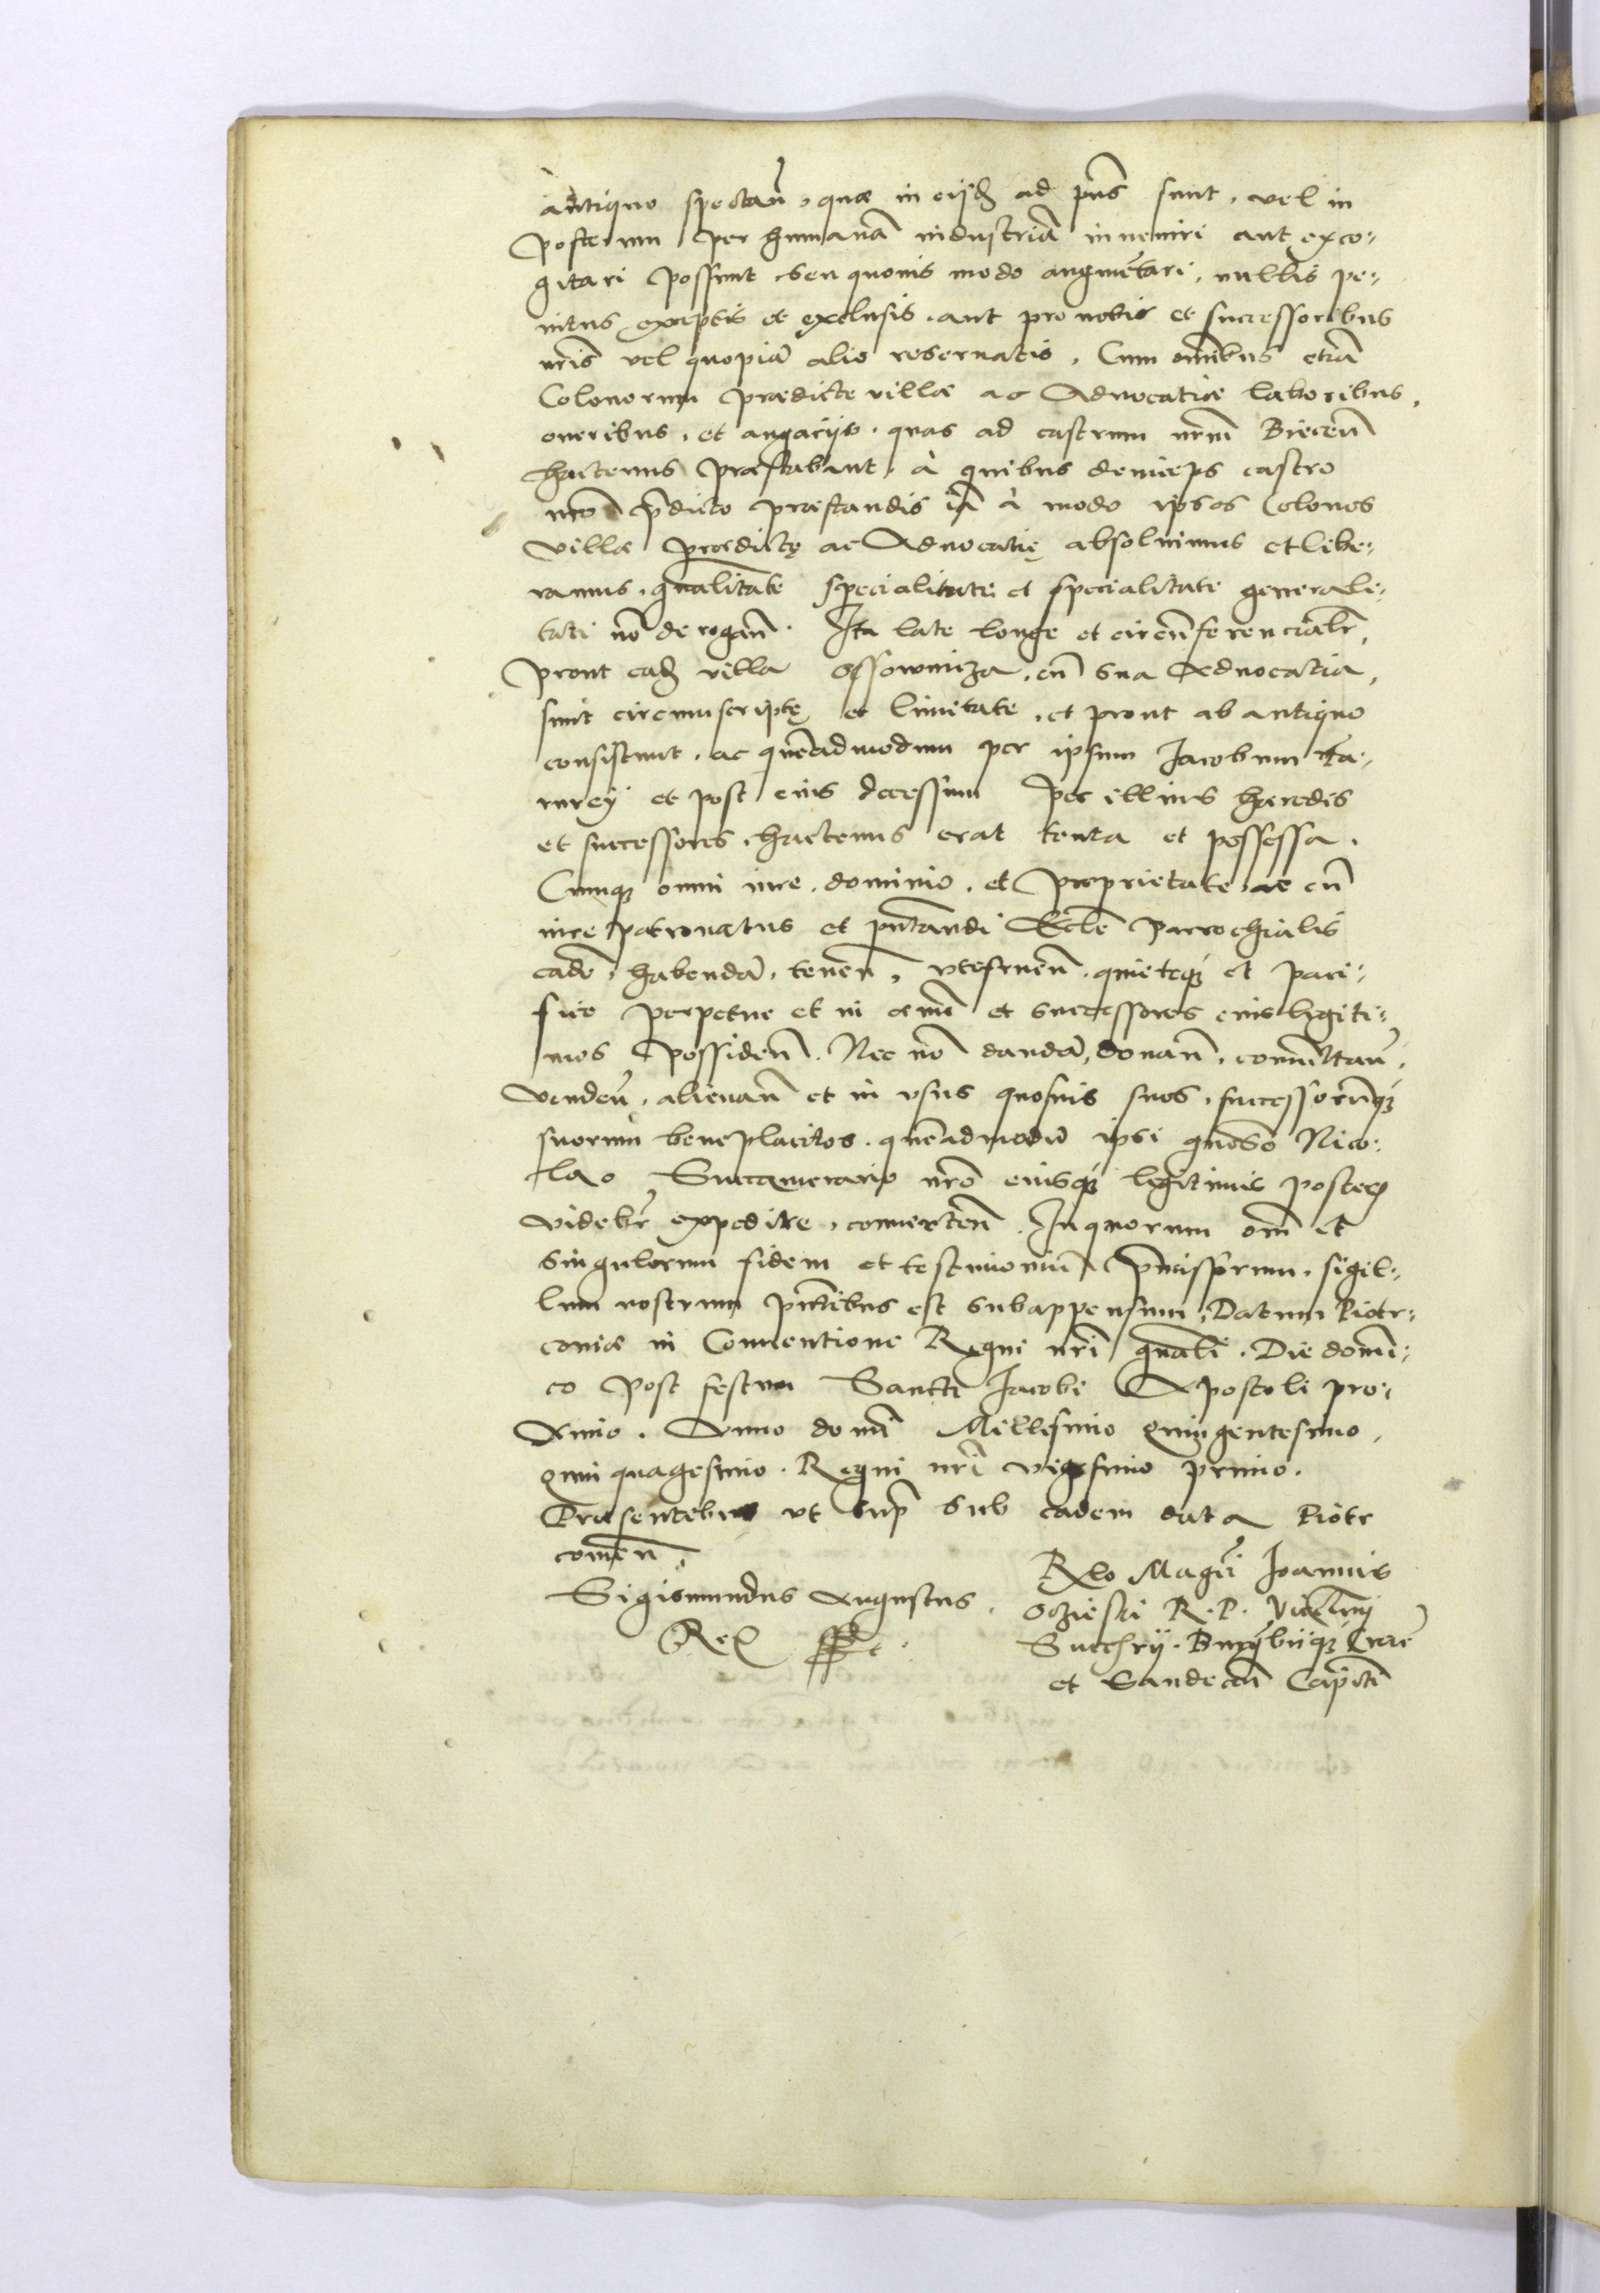 antiquo spectan̄, quæ in eijsd̄ ad pn̄s sunt, vel in
posterum per humanā industriā inveniri aut exco-
gitari possunt seu quovis modo augmētari, nullis pe-
nitus exceptis et exclusis, aut pro nobis et successoribus
nr̄is vel quopiā alio reservatis. Cum om̄ibus etiā
Colonorum prædictæ villæ ac Advocatiæ laboribus,
oneribus, et angarijs, quas ad castrum nr̄um Biecen̄
hactenus præstabant, à quibus deinceps castro
nr̄o p̄dicto præstandis iā à modo ipsos Colonos
villæ prædictę ac Advocatię absolvimus et libe-
ramus, gn̄alitate specialitati et specialitate generali-
tati nō derogan̄. Ita late longe et circūferencialr̄,
prout ead̄ villa Ossownicza, cū sua Advocatia,
sunt circumscriptę et limitate, et prout ab antiquo
consistunt, ac quēadmodum per ipsum Jacobum
et post eius decessum per illius hæredis
et successores, hactenus erat tenta et possessa.
Cumq₃ omni iure, dominio, et proprietate, ac cū
iure patronatus et pn̄tandi Ecclē parrochialis
eadē, habendā, tenen̄, vtefruen̄, quieteq₃ et paci-
fice perpetue et in ævū et successores eius legiti-
mos possiden̄. Nec nō dandā, donan̄, commutan̄,
venden̄, alienan̄ et in vsus quosvis suos, successorūq₃
suorum beneplacitos, quēadmodū ipsi gn̄oso Nico-
lao Succamerario nr̄o eiusq₃ legitimis posteris
videbr̄ expedire, converten̄. In quorum om̄ et
singulorum fidem et testimoniū p̄missorum, sigil-
lum nostrum pn̄tibus est subappensum. Datum Piotr-
coviæ in Conventione Regni nr̄i gn̄ali. Die domī-
co post festum Sancti Jacobi Apostoli pro-
ximo. Anno domī Millesimo quingentesimo,
quinquagesimo. Regni nr̄i vigesimo primo.
Præsentibus ut sup̄ sub eadem data Piotr
covien̄.
Sigismundus Augustus
Rex sst.
Rlo Magci Joannis
Oczieski R. P. Vicecanrij
Succ̄rij. Burg̃bijq₃ Crac̄
et Sandecen̄ Capitī